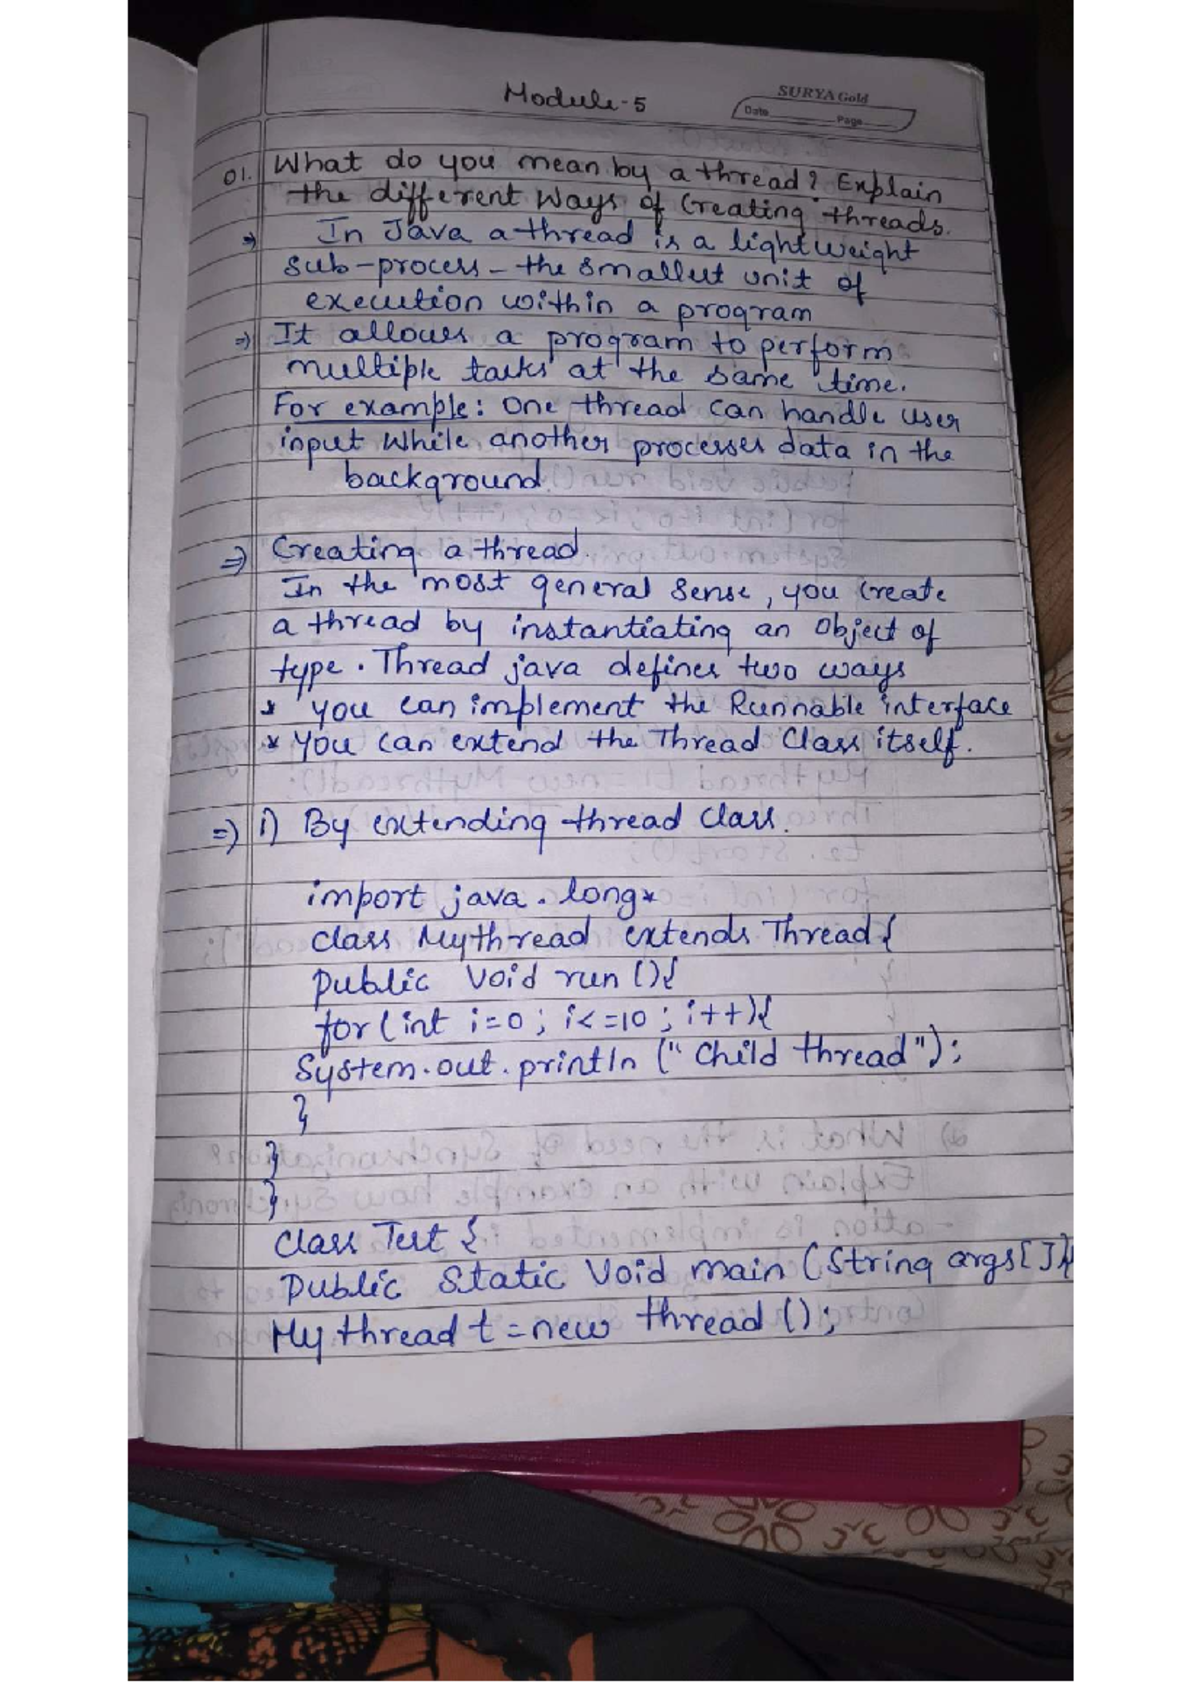 Module-5
SURYA Gold
Date Page
01. What do you mean by a thread? Explain
the different Ways of Creating threads.
⇒ In Java a thread is a lightweight
sub-process - the smallest unit of
execution within a program
⇒ It allows a program to perform
multiple tasks at the same time.
For example: One thread can handle user
input While another processes data in the
background.
⇒ Creating a thread.
In the most general sense, you create
a thread by instantiating an Object of
type. Thread java defines two ways
* you can implement the Runnable interface
* You can extend the Thread Class itself.
⇒ i) By extending thread class.
import java.long*
class Mythread extends Thread{
Public Void run (){
for(int i=0; i<=10; i++){
System.out.println ("Child thread");
}
}
}
class Test {
Public Static Void main (String args[]){
My thread t = new thread ();